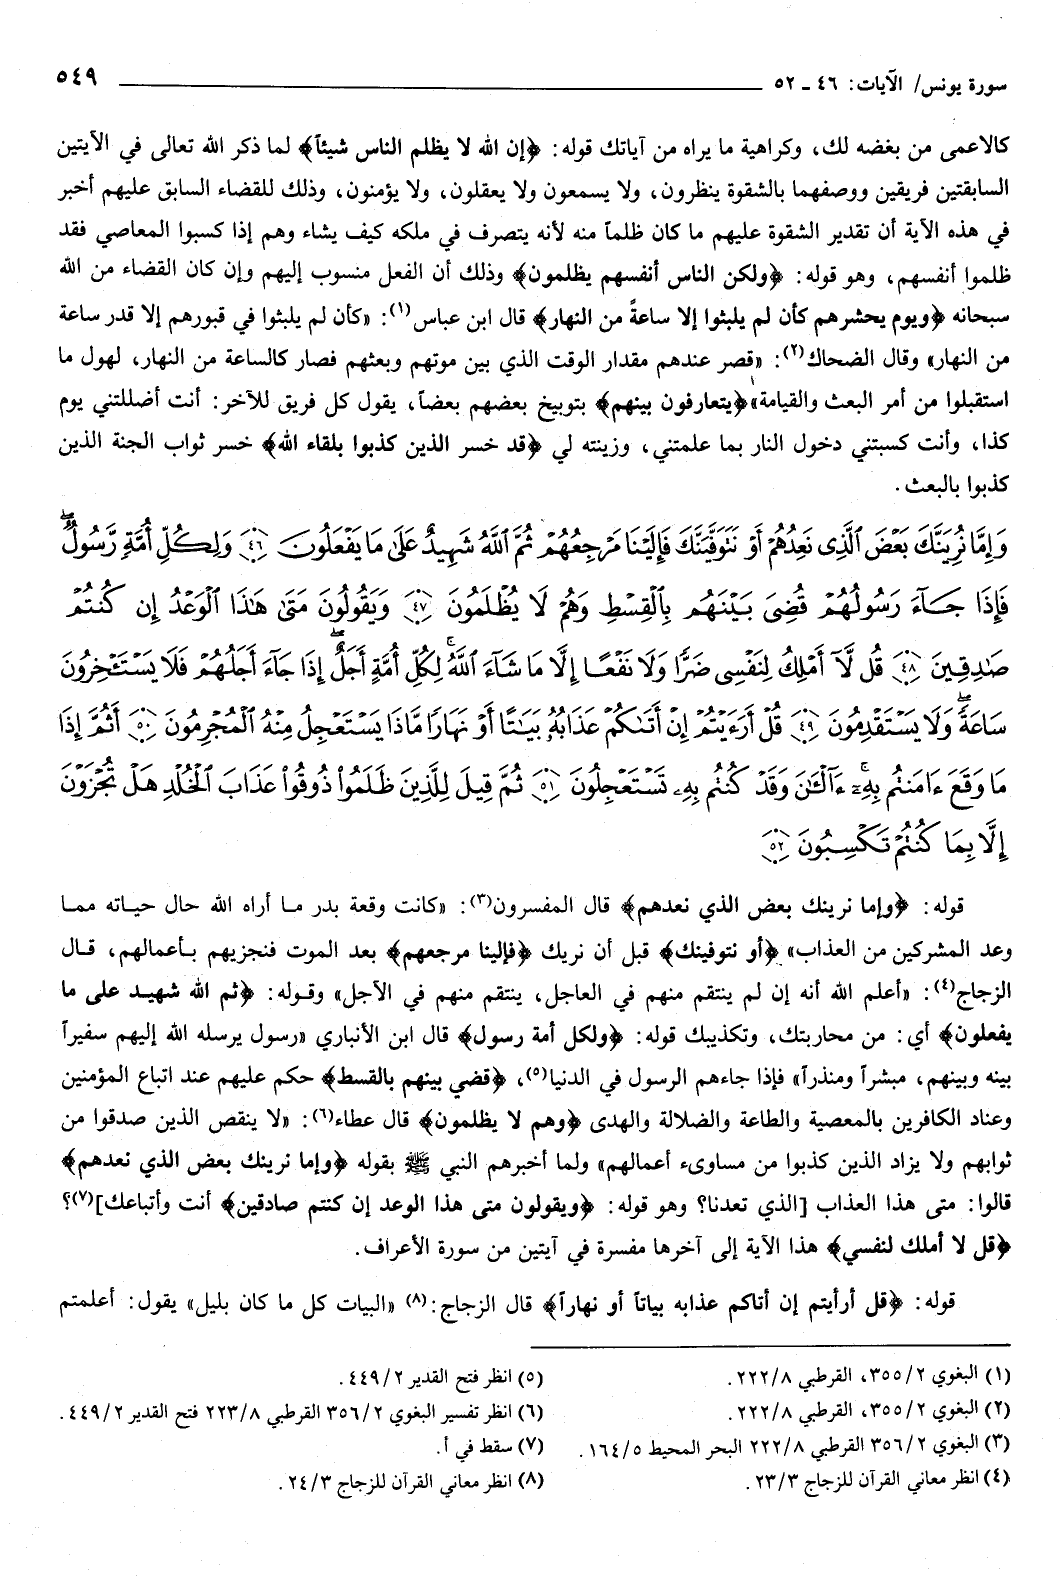 سورة يونس/ الآيات: ٤٦ ـ ٥٢
٥٤٩
كالاعمى من بغضه لك، وكراهية ما يراه من آياتك قوله: ﴿إن الله لا يظلم الناس شيئاً﴾ لما ذكر الله تعالى في الآيتين
السابقتين فريقين ووصفهما بالشقوة ينظرون، ولا يسمعون ولا يعقلون، ولا يؤمنون، وذلك للقضاء السابق عليهم أخبر
في هذه الآية أن تقدير الشقوة عليهم ما كان ظلماً منه لأنه يتصرف في ملكه كيف يشاء وهم إذا كسبوا المعاصي فقد
ظلموا أنفسهم، وهو قوله: ﴿ولكن الناس أنفسهم يظلمون﴾ وذلك أن الفعل منسوب إليهم وإن كان القضاء من الله
سبحانه ﴿ويوم يحشرهم كأن لم يلبثوا إلا ساعةً من النهار﴾ قال ابن عباس(١): «كأن لم يلبثوا في قبورهم إلا قدر ساعة
من النهار» وقال الضحاك(٢): «قصر عندهم مقدار الوقت الذي بين موتهم وبعثهم فصار كالساعة من النهار، لهول ما
استقبلوا من أمر البعث والقيامة»﴿يتعارفون بينهم﴾ بتوبيخ بعضهم بعضاً، يقول كل فريق للآخر: أنت أضللتني يوم
كذا، وأنت كسبتني دخول النار بما علمتني، وزينته لي ﴿قد خسر الذين كذبوا بلقاء الله﴾ خسر ثواب الجنة الذين
كذبوا بالبعث.
وَإِمَّا نُرِيَنَّكَ بَعْضَ ٱلَّذِى نَعِدُهُمْ أَوْ نَتَوَفَّيَنَّكَ فَإِلَيْنَا مَرْجِعُهُمْ ثُمَّ ٱللَّهُ شَهِيدٌ عَلَىٰ مَا يَفْعَلُونَ ٤٦ وَلِكُلِّ أُمَّةٍ رَّسُولٌ ۖ
فَإِذَا جَآءَ رَسُولُهُمْ قُضِىَ بَيْنَهُم بِٱلْقِسْطِ وَهُمْ لَا يُظْلَمُونَ ٤٧ وَيَقُولُونَ مَتَىٰ هَٰذَا ٱلْوَعْدُ إِن كُنتُمْ
صَٰدِقِينَ ٤٨ قُل لَّآ أَمْلِكُ لِنَفْسِى ضَرًّا وَلَا نَفْعًا إِلَّا مَا شَآءَ ٱللَّهُ ۗ لِكُلِّ أُمَّةٍ أَجَلٌ ۚ إِذَا جَآءَ أَجَلُهُمْ فَلَا يَسْتَـْٔخِرُونَ
سَاعَةً ۖ وَلَا يَسْتَقْدِمُونَ ٤٩ قُلْ أَرَءَيْتُمْ إِنْ أَتَىٰكُمْ عَذَابُهُۥ بَيَٰتًا أَوْ نَهَارًا مَّاذَا يَسْتَعْجِلُ مِنْهُ ٱلْمُجْرِمُونَ ٥٠ أَثُمَّ إِذَا
مَا وَقَعَ ءَامَنتُم بِهِۦٓ ۚ ءَآلْـَٰٔنَ وَقَدْ كُنتُم بِهِۦ تَسْتَعْجِلُونَ ٥١ ثُمَّ قِيلَ لِلَّذِينَ ظَلَمُوا۟ ذُوقُوا۟ عَذَابَ ٱلْخُلْدِ هَلْ تُجْزَوْنَ
إِلَّا بِمَا كُنتُمْ تَكْسِبُونَ ٥٢
قوله: ﴿وإما نرينك بعض الذي نعدهم﴾ قال المفسرون(٣): «كانت وقعة بدر ما أراه الله حال حياته مما
وعد المشركين من العذاب» ﴿أو نتوفينك﴾ قبل أن نريك ﴿فإلينا مرجعهم﴾ بعد الموت فنجزيهم بأعمالهم، قال
الزجاج(٤): «أعلم الله أنه إن لم ينتقم منهم في العاجل، ينتقم منهم في الآجل» وقوله: ﴿ثم الله شهيد على ما
يفعلون﴾ أي: من محاربتك، وتكذيبك قوله: ﴿ولكل أمة رسول﴾ قال ابن الأنباري «رسول يرسله الله إليهم سفيراً
بينه وبينهم، مبشراً ومنذراً» فإذا جاءهم الرسول في الدنيا(٥)، ﴿قضي بينهم بالقسط﴾ حكم عليهم عند اتباع المؤمنين
وعناد الكافرين بالمعصية والطاعة والضلالة والهدى ﴿وهم لا يظلمون﴾ قال عطاء(٦): «لا ينقص الذين صدقوا من
ثوابهم ولا يزاد الذين كذبوا من مساوىء أعمالهم» ولما أخبرهم النبي ﷺ بقوله ﴿وإما نرينك بعض الذي نعدهم﴾
قالوا: متى هذا العذاب [الذي تعدنا؟ وهو قوله: ﴿ويقولون متى هذا الوعد إن كنتم صادقين﴾ أنت وأتباعك](٧)؟
﴿قل لا أملك لنفسي﴾ هذا الآية إلى آخرها مفسرة في آيتين من سورة الأعراف.
قوله: ﴿قل أرأيتم إن أتاكم عذابه بياتاً أو نهاراً﴾ قال الزجاج:(٨) «البيات كل ما كان بليل» يقول: أعلمتم
(١) البغوي ٢/ ٣٥٥، القرطبي ٨/ ٢٢٢.
(٢) البغوي ٢/ ٣٥٥، القرطبي ٨/ ٢٢٢.
(٣) البغوي ٢/ ٣٥٦ القرطبي ٨/ ٢٢٢ البحر المحيط ٥/ ١٦٤.
(٤) انظر معاني القرآن للزجاج ٣/ ٢٣.
(٥) انظر فتح القدير ٢/ ٤٤٩.
(٦) انظر تفسير البغوي ٢/ ٣٥٦ القرطبي ٨/ ٢٢٣ فتح القدير ٢/ ٤٤٩.
(٧) سقط في أ.
(٨) انظر معاني القرآن للزجاج ٣/ ٢٤.